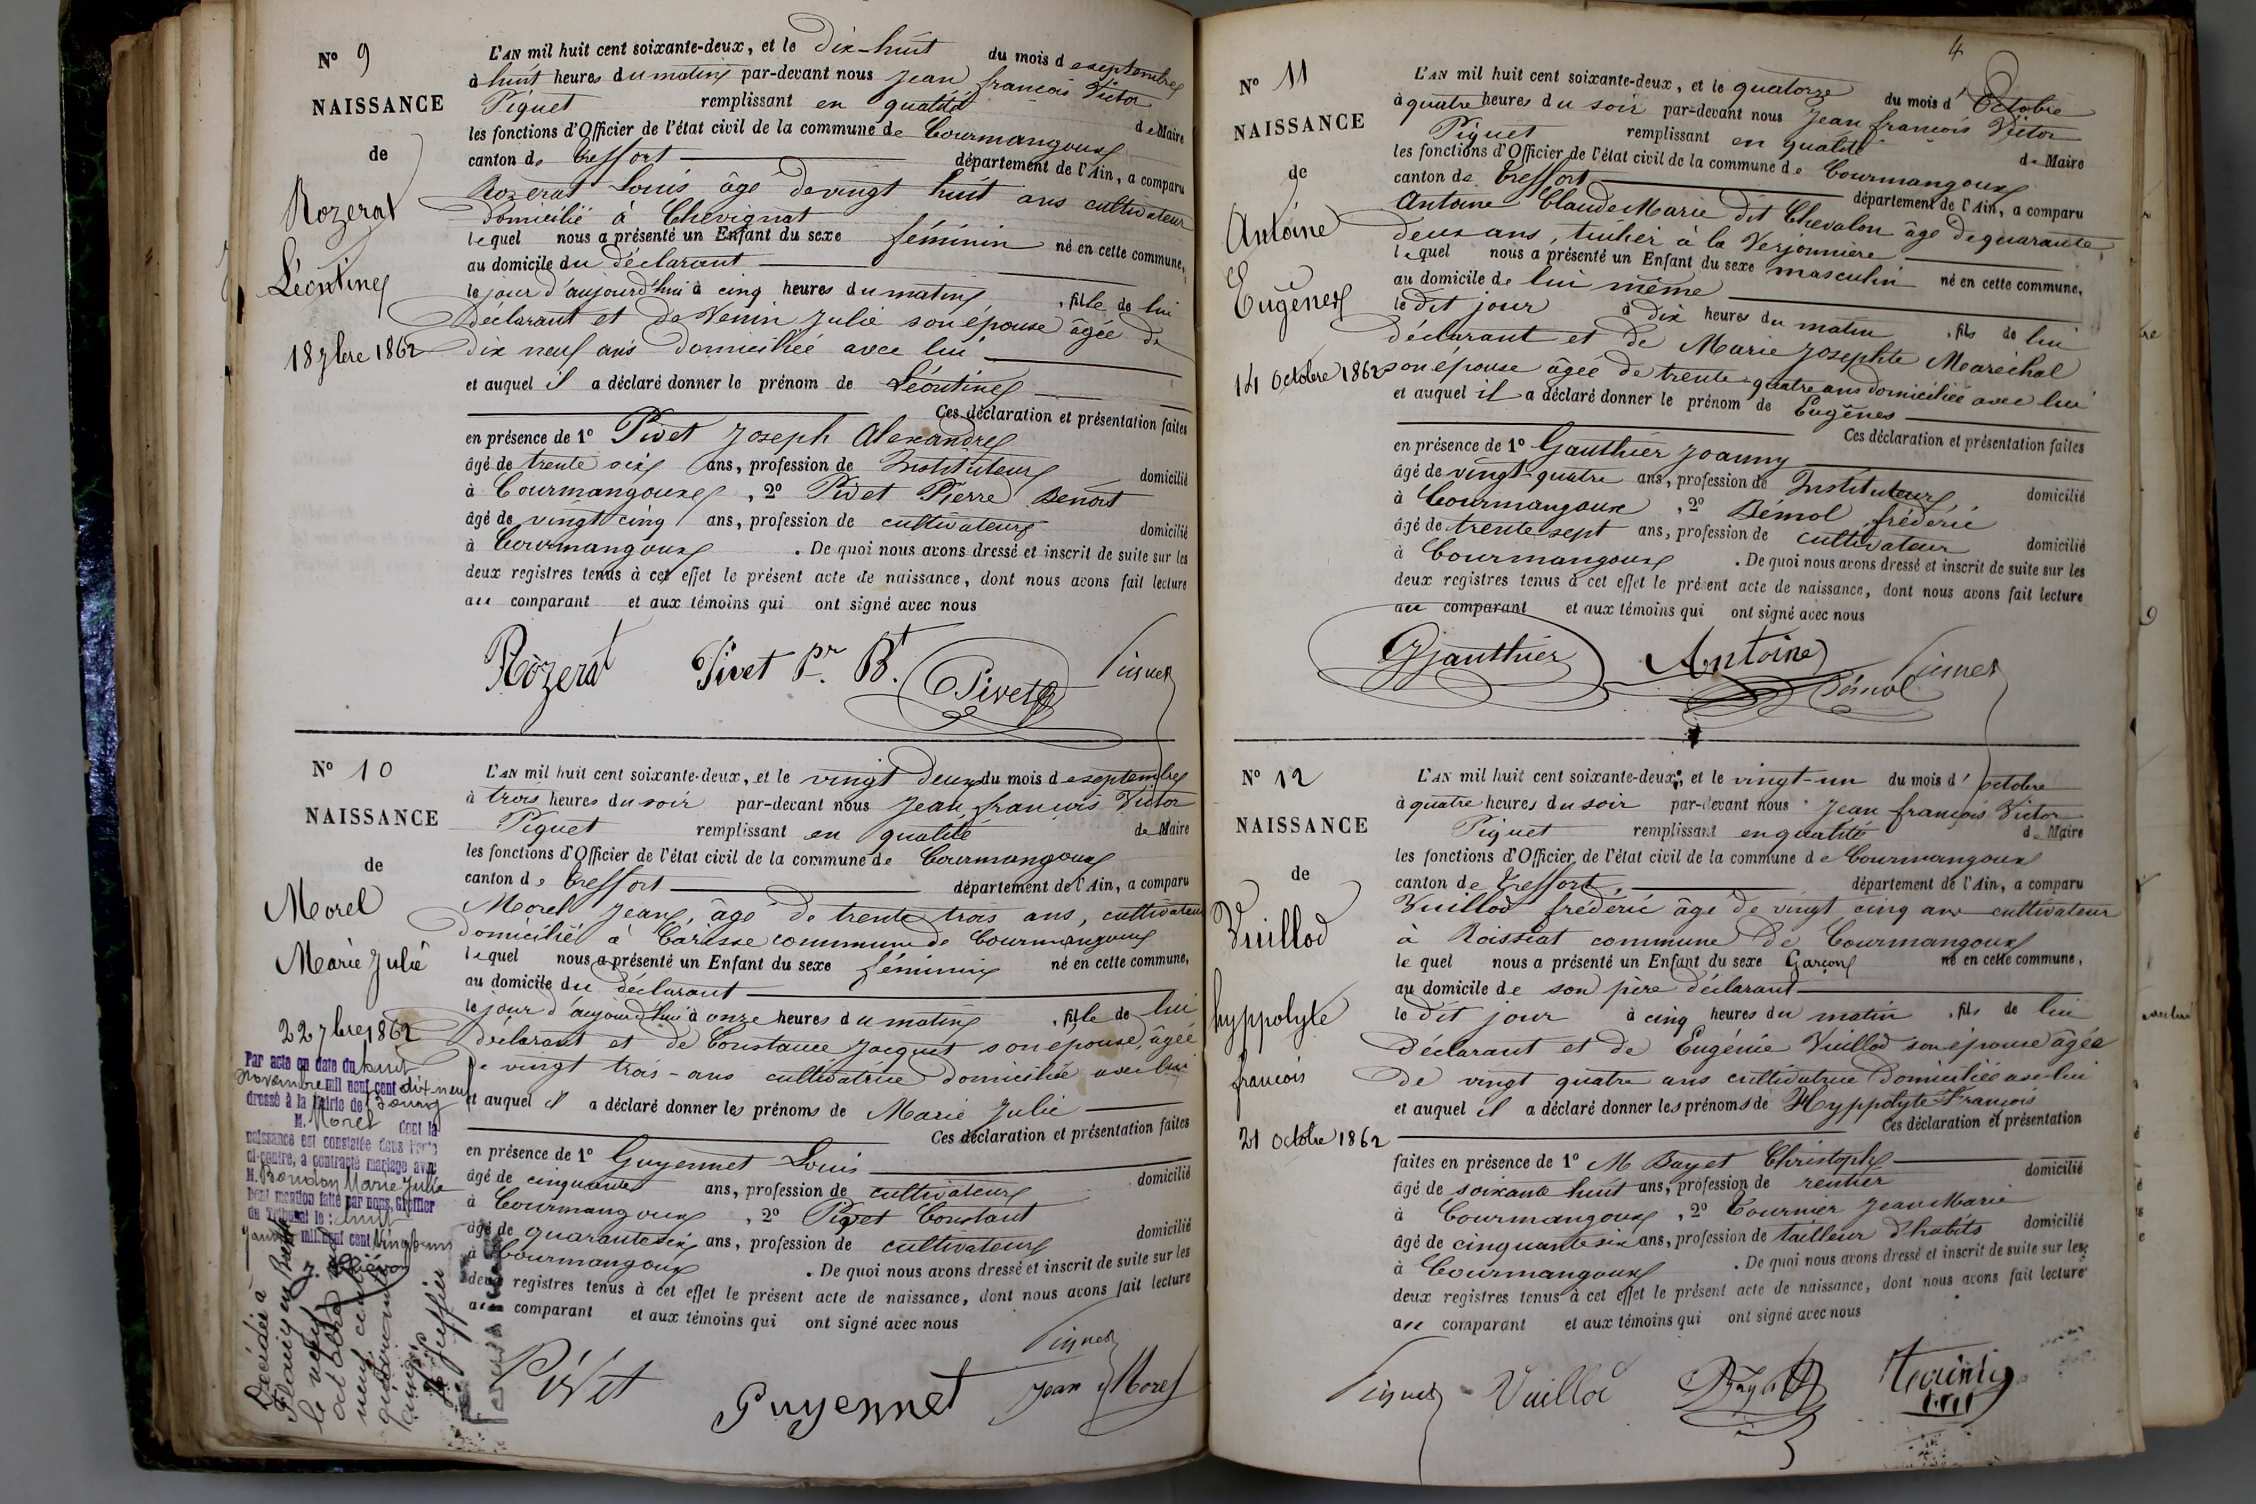 N° 9
NAISSANCE
de
Rozerat
Léontine
18 7bre 1862
L'AN mil huit cent soixante-deux, et le dix-huit du mois de septembre
à huit heures du matin par-devant nous Jean françois Victor
Piguet remplissant en qualité de Maire
les fonctions d'Officier de l'état civil de la commune de Courmangoux
canton de Treffort département de l'Ain, a comparu
Rozerat Louis âgé de vingt huit ans cultivateur
domicilié à Chevignat
lequel nous a présenté un Enfant du sexe féminin né en cette commune,
au domicile du déclarant
le jour d'aujourd'hui à cinq heures du matin, fille de lui
déclarant et de Venin Julie son épouse âgée de
dix neuf ans domiciliée avec lui
et auquel il a déclaré donner le prénom de Léontine
Ces déclaration et présentation faites
en présence de 1° Pivet Joseph Alexandre
âgé de trente six ans, profession de Instituteur domicilié
à Courmangoux, 2° Pivet Pierre Benoit
âgé de vingt cinq ans, profession de cultivateur domicilié
à Courmangoux. De quoi nous avons dressé et inscrit de suite sur les
deux registres tenus à cet effet le présent acte de naissance, dont nous avons fait lecture
au comparant et aux témoins qui ont signé avec nous
Rozerat Pivet Pr. Bt. Pivet Piguet
N° 10
NAISSANCE
de
Morel
Marie Julie
22 7bre 1862
Par acte en date du huit
novembre mil neuf cent dix-neuf
dressé à la Mairie de Bourg
M. Morel dont la
naissance est constatée dans l'acte
ci-contre, a contracté mariage avec
M. Bondon Marie Julie
Dont mention faite par nous, Greffier
du Tribunal le huit
mil neuf cent vingt
Décédée à
le neuf
octobre mil
neuf cent
L'AN mil huit cent soixante-deux, et le vingt deux du mois de septembre
à trois heures du soir par-devant nous Jean françois Victor
Piguet remplissant en qualité de Maire
les fonctions d'Officier de l'état civil de la commune de Courmangoux
canton de Treffort département de l'Ain, a comparu
Morel Jean, âgé de trente trois ans, cultivateur
domicilié à commune de Courmangoux
lequel nous a présenté un Enfant du sexe féminin né en cette commune,
au domicile du déclarant
le jour d'aujourd'hui à onze heures du matin, fille de lui
déclarant et de Constance Jacquet son épouse, âgée
de vingt trois ans cultivatrice domiciliée avec lui
et auquel il a déclaré donner les prénoms de Marie Julie
Ces déclaration et présentation faites
en présence de 1° Guyennet Louis
âgé de cinquante ans, profession de cultivateur domicilié
à Courmangoux, 2° Pivet Constant
âgé de quarante six ans, profession de cultivateur domicilié
à Courmangoux. De quoi nous avons dressé et inscrit de suite sur les
deux registres tenus à cet effet le présent acte de naissance, dont nous avons fait lecture
au comparant et aux témoins qui ont signé avec nous
Piguet
Pivet Guyennet Jean Morel
4
N° 11
NAISSANCE
de
Antoine
Eugène
14 Octobre 1862
L'AN mil huit cent soixante-deux, et le quatorze du mois d'Octobre
à quatre heures du soir par-devant nous Jean françois Victor
Piguet remplissant en qualité de Maire
les fonctions d'Officier de l'état civil de la commune de Courmangoux
canton de Treffort département de l'Ain, a comparu
Antoine Claude Marie dit Chevalon âgé de quarante
deux ans, tuilier à la Verjonnière
lequel nous a présenté un Enfant du sexe masculin né en cette commune,
au domicile de lui même
le dit jour à dix heures du matin, fils de lui
déclarant et de Marie Josephte Maréchal
son épouse âgée de trente-quatre ans domiciliée avec lui
et auquel il a déclaré donner le prénom de Eugène
Ces déclaration et présentation faites
en présence de 1° Gauthier Joanny
âgé de vingt-quatre ans, profession de Instituteur domicilié
à Courmangoux, 2° Bémol frédéric
âgé de trente sept ans, profession de cultivateur domicilié
à Courmangoux. De quoi nous avons dressé et inscrit de suite sur les
deux registres tenus à cet effet le présent acte de naissance, dont nous avons fait lecture
au comparant et aux témoins qui ont signé avec nous
Gauthier Antoine Bémol Piguet
N° 12
NAISSANCE
de
Vuillod
hyppolyte
francois
21 Octobre 1862
L'AN mil huit cent soixante-deux, et le vingt-un du mois d'octobre
à quatre heures du soir par-devant nous Jean françois Victor
Piguet remplissant en qualité de Maire
les fonctions d'Officier de l'état civil de la commune de Courmangoux
canton de Treffort, département de l'Ain, a comparu
Vuillod frédéric âgé de vingt cinq ans cultivateur
à Roissiat commune de Courmangoux
lequel nous a présenté un Enfant du sexe Garçon né en cette commune,
au domicile de son père déclarant
le dit jour à cinq heures du matin, fils de lui
déclarant et de Eugénie Vuillod son épouse âgée
de vingt quatre ans cultivatrice domiciliée avec lui
et auquel il a déclaré donner les prénoms de Hyppolyte François
Ces déclaration et présentation
faites en présence de 1° M Bayet Christophe
âgé de soixante huit ans, profession de rentier domicilié
à Courmangoux, 2° Tournier Jean Marie
âgé de cinquante six ans, profession de tailleur d'habits domicilié
à Courmangoux. De quoi nous avons dressé et inscrit de suite sur les
deux registres tenus à cet effet le présent acte de naissance, dont nous avons fait lecture
au comparant et aux témoins qui ont signé avec nous
Piguet Vuillod